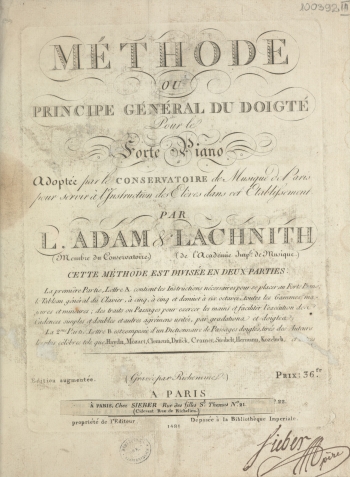 100392
MÉTHODE
OU
PRINCIPE GÉNÉRAL DU DOIGTÉ
Pour le
Forte Piano
Adoptée par le CONSERVATOIRE de Musique de Paris
pour servir à l'Instruction des Elèves dans cet Etablissement
PAR
L. ADAM & LACHNITH
(Membre du Conservatoire) (de l'Académie Imp.le de Musique)
CETTE MÉTHODE EST DIVISÉE EN DEUX PARTIES
La première Partie, Lettre A. contient les Instructions nécessaires pour se placer au Forte Piano,
le Tableau général du Clavier, à cinq, à cinq et demi et à six octaves, toutes les Gammes ma-
jeures et mineures, des traits ou Passages pour exercer les mains et faciliter l'exécution des
Cadences simples et doubles et autres agrémens notés, par gradations, et doigtés.
La 2.me Partie, Lettre B. est composée d'un Dictionnaire de Passages doigtés, tirés des Auteurs
les plus célèbres tels que Haydn, Mozart, Clementi, Dusick, Cramer, Steibelt, Hermann, Kozeluch.
Edition augmentée. (Gravée par Richomme) PRIX: 36.tt
A PARIS
À PARIS, Chez SIEBER Rue des Filles St. Thomas N.o 21.
propriété de l'Editeur Déposée à la Bibliothèque Imperiale
Sieber
père